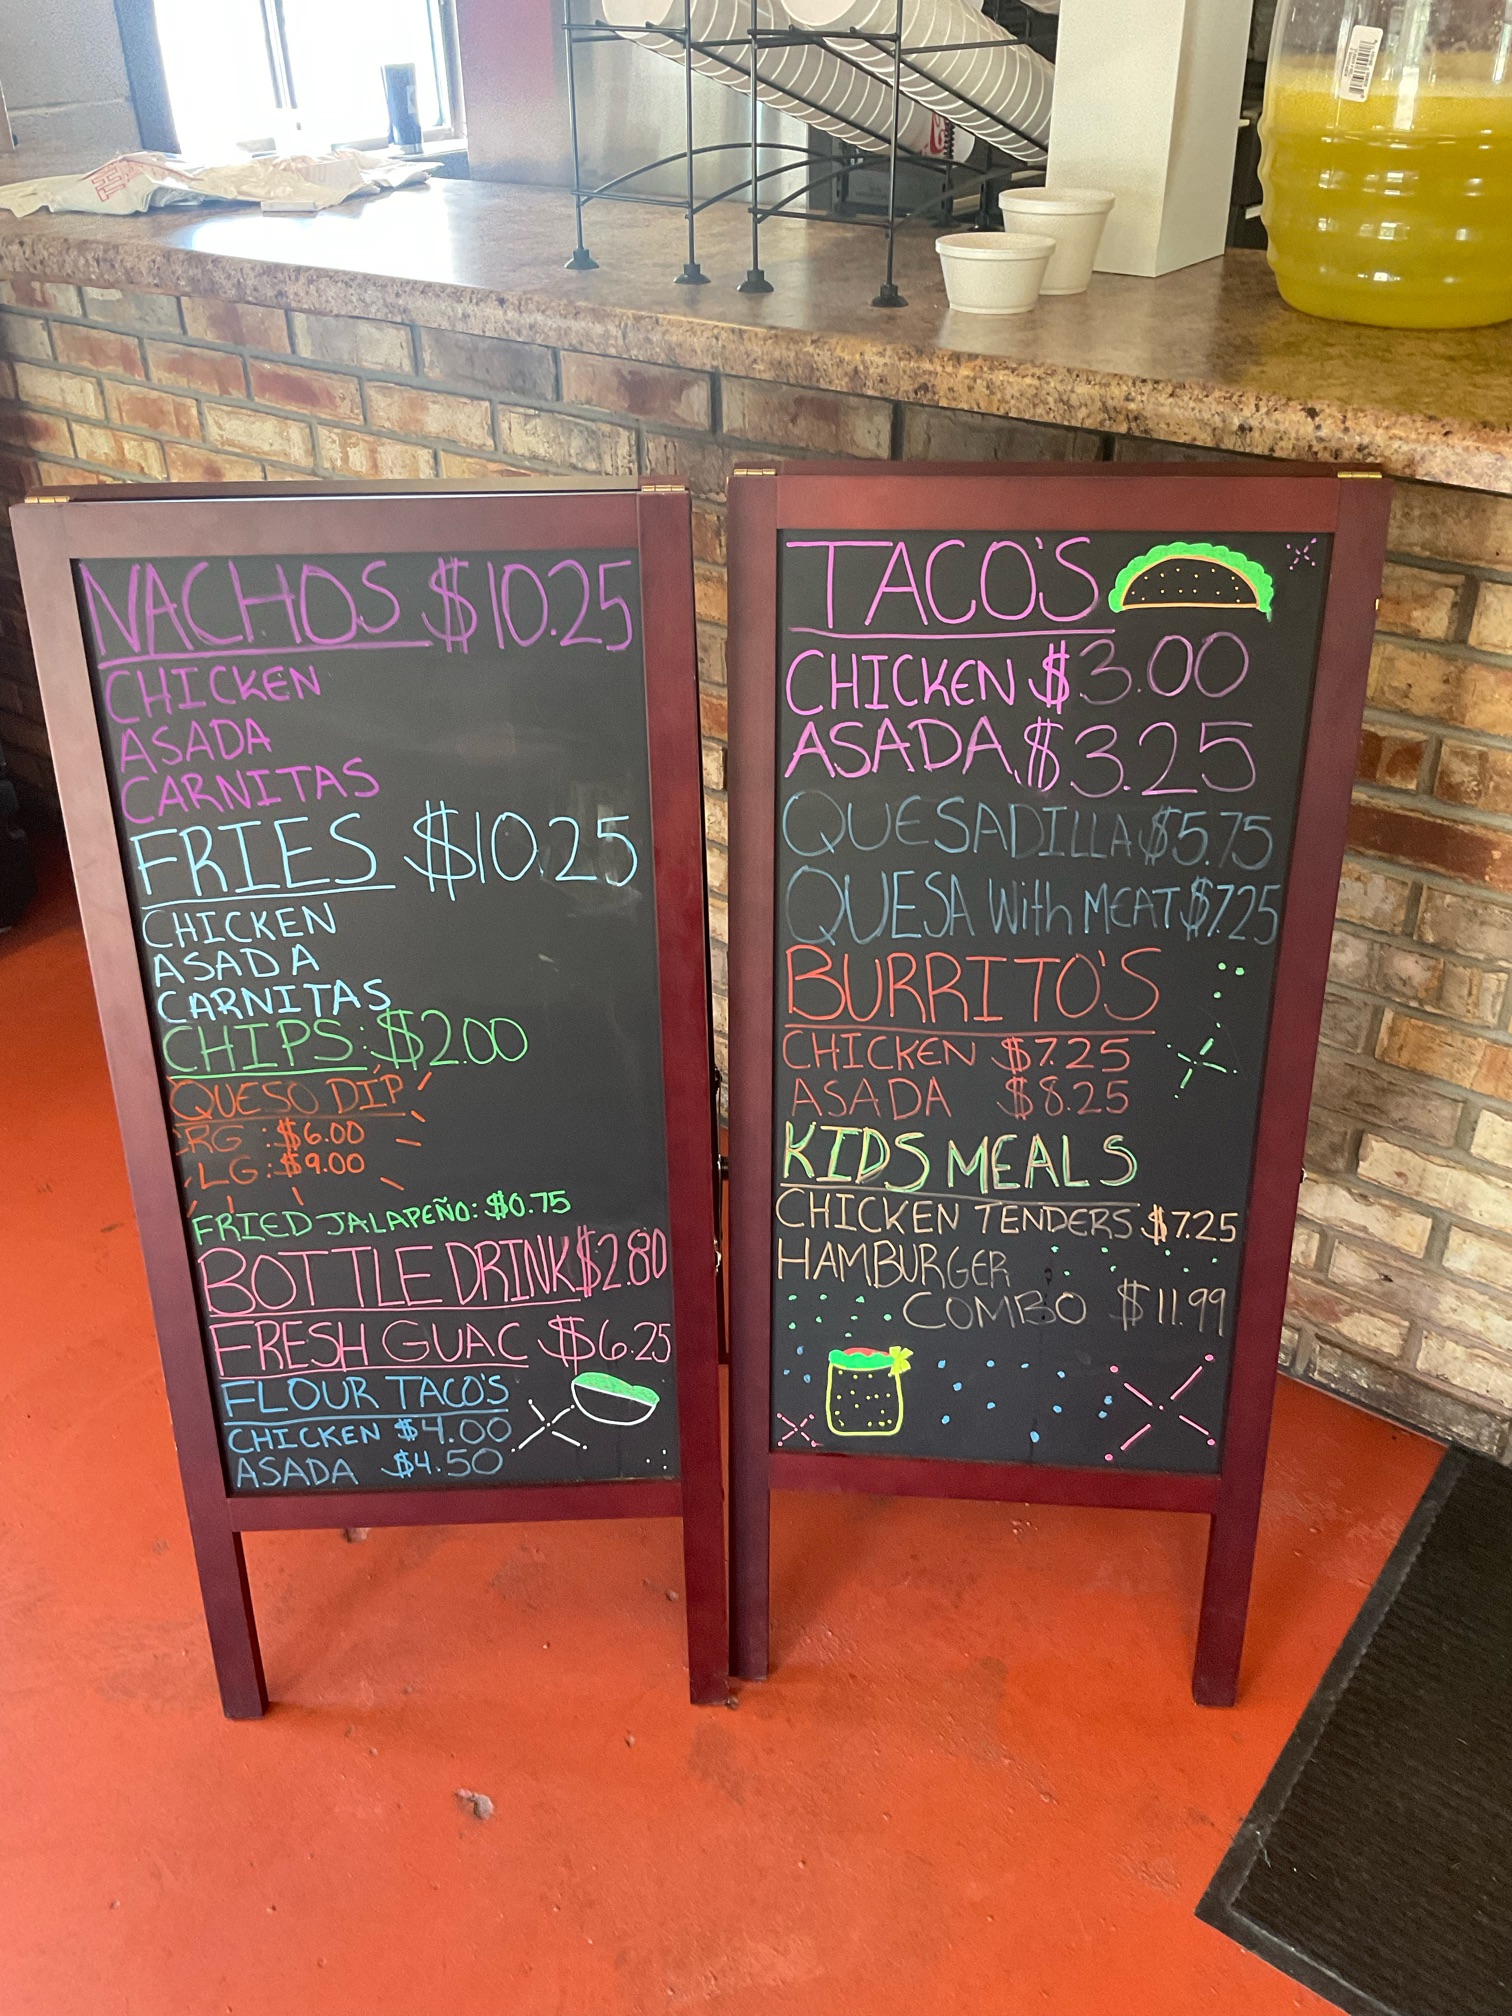 NACHOS $10.25
CHICKEN
ASADA
CARNITAS
FRIES $10.25
CHICKEN
ASADA
CARNITAS
CHIPS: $2.00
QUESO DIP
RG : $6.00
LG : $9.00
FRIED JALAPEÑO: $0.75
BOTTLE DRINK $2.80
FRESH GUAC $6.25
FLOUR TACO'S
CHICKEN $4.00
ASADA $4.50
TACO'S
CHICKEN $3.00
ASADA $3.25
QUESADILLA $5.75
QUESA With MEAT $7.25
BURRITO'S
CHICKEN $7.25
ASADA $8.25
KIDS MEALS
CHICKEN TENDERS $7.25
HAMBURGER
COMBO $11.99